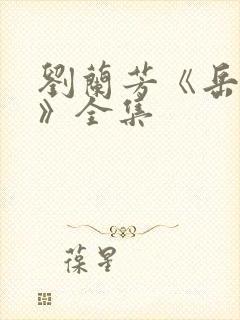 劉蘭芳《岳
》全集
葆星